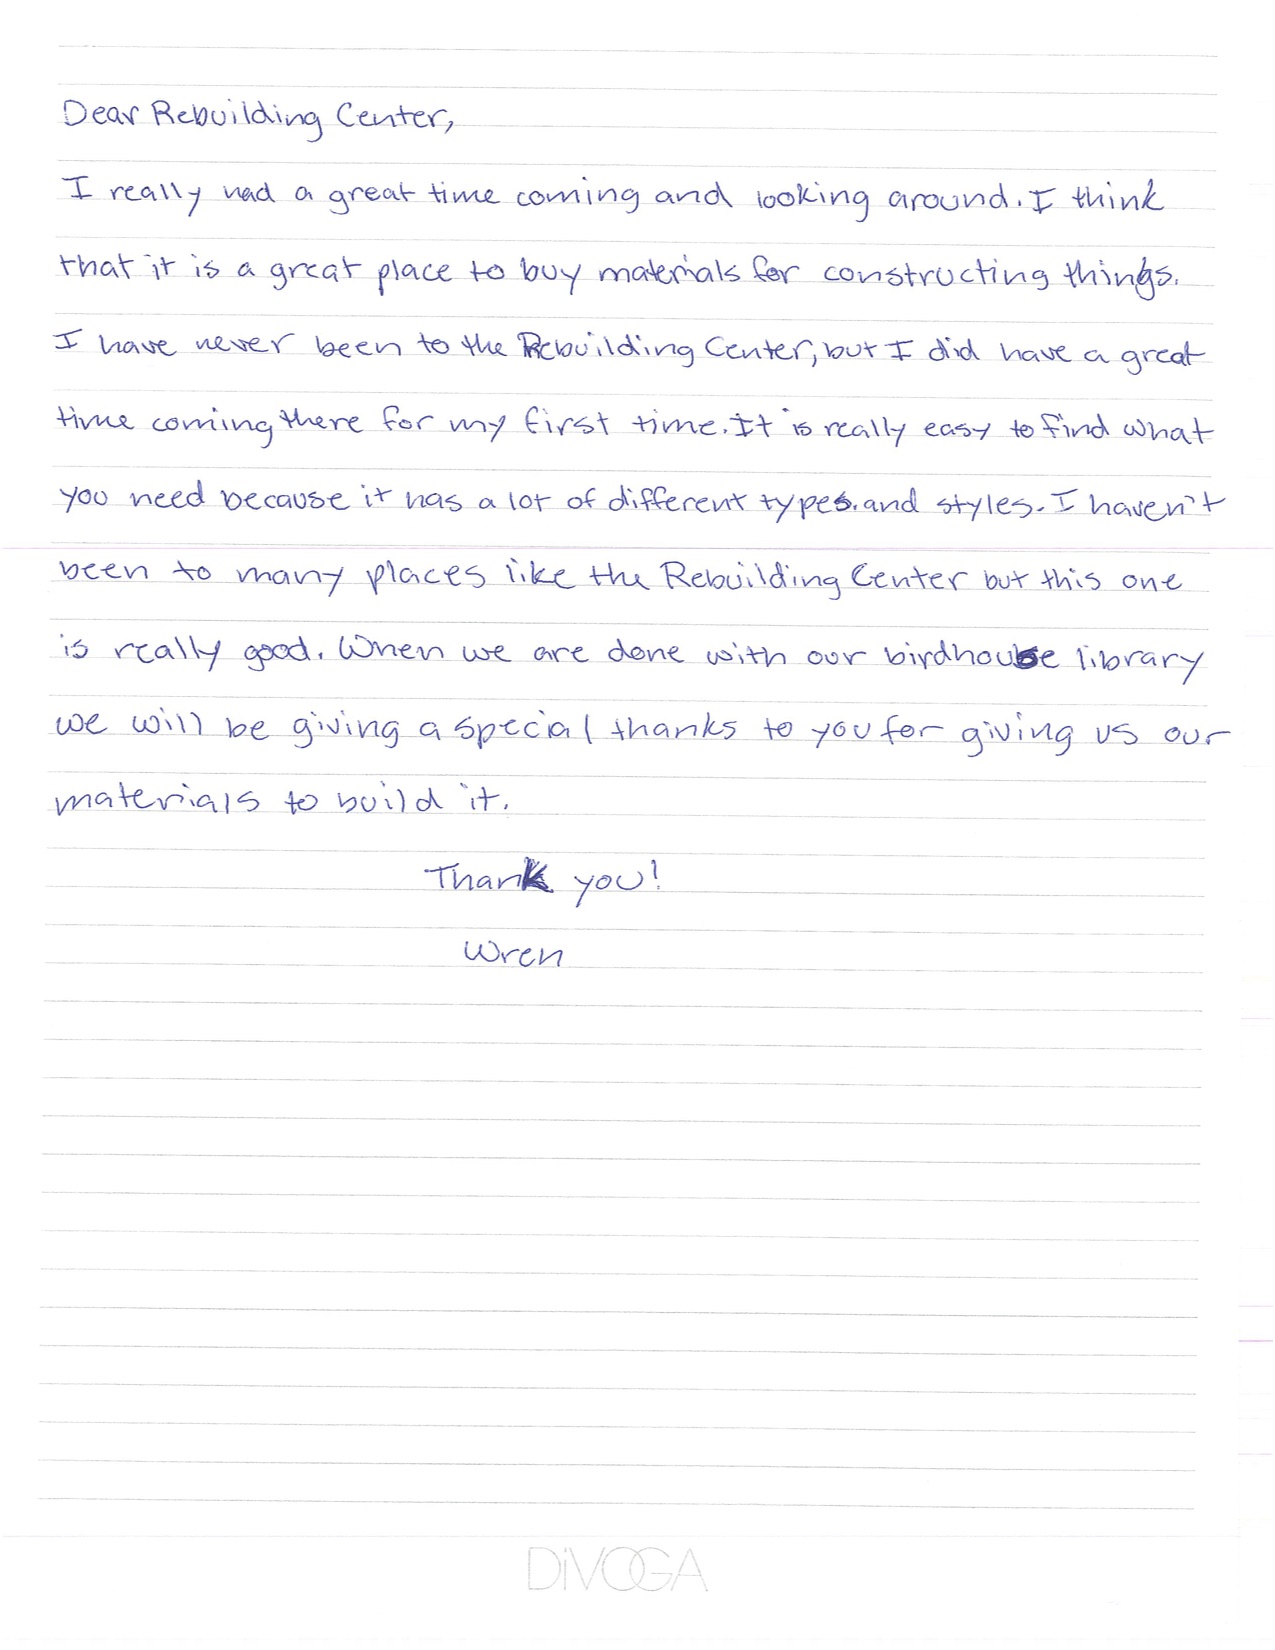 Dear Rebuilding Center,
I really had a great time coming and looking around. I think
that it is a great place to buy materials for constructing things.
I have never been to the Rebuilding Center, but I did have a great
time coming there for my first time. It is really easy to find what
you need because it has a lot of different types. and styles. I haven't
been to many places like the Rebuilding Center but this one
is really good. When we are done with our birdhouse library
we will be giving a special thanks to you for giving us our
materials to build it.
Thank you!
Wren
DiVOGA